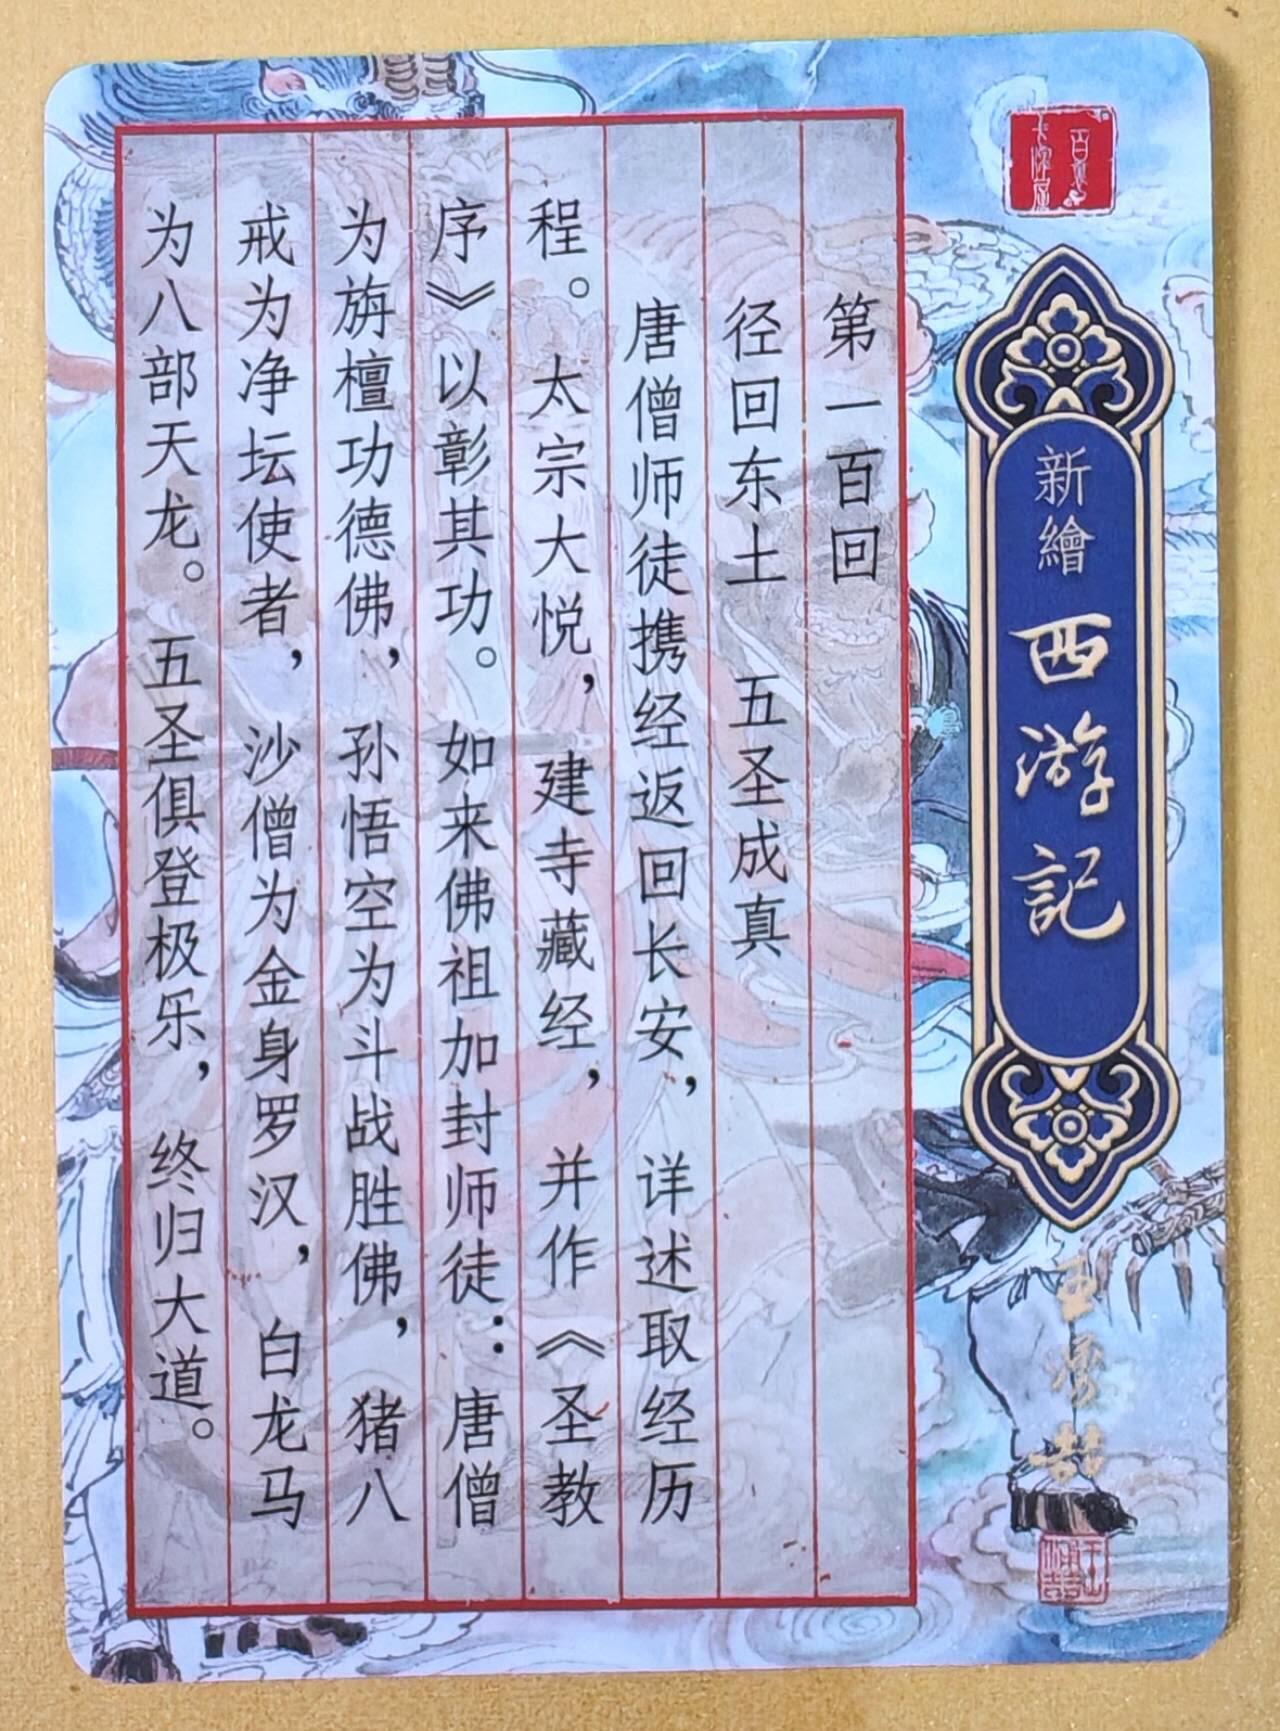 新繪 西游記
第一百回
径回东土 五圣成真
唐僧师徒携经返回长安，详述取经历
程。太宗大悦，建寺藏经，并作《圣教
序》以彰其功。如来佛祖加封师徒：唐僧
为旃檀功德佛，孙悟空为斗战胜佛，猪八
戒为净坛使者，沙僧为金身罗汉，白龙马
为八部天龙。五圣俱登极乐，终归大道。